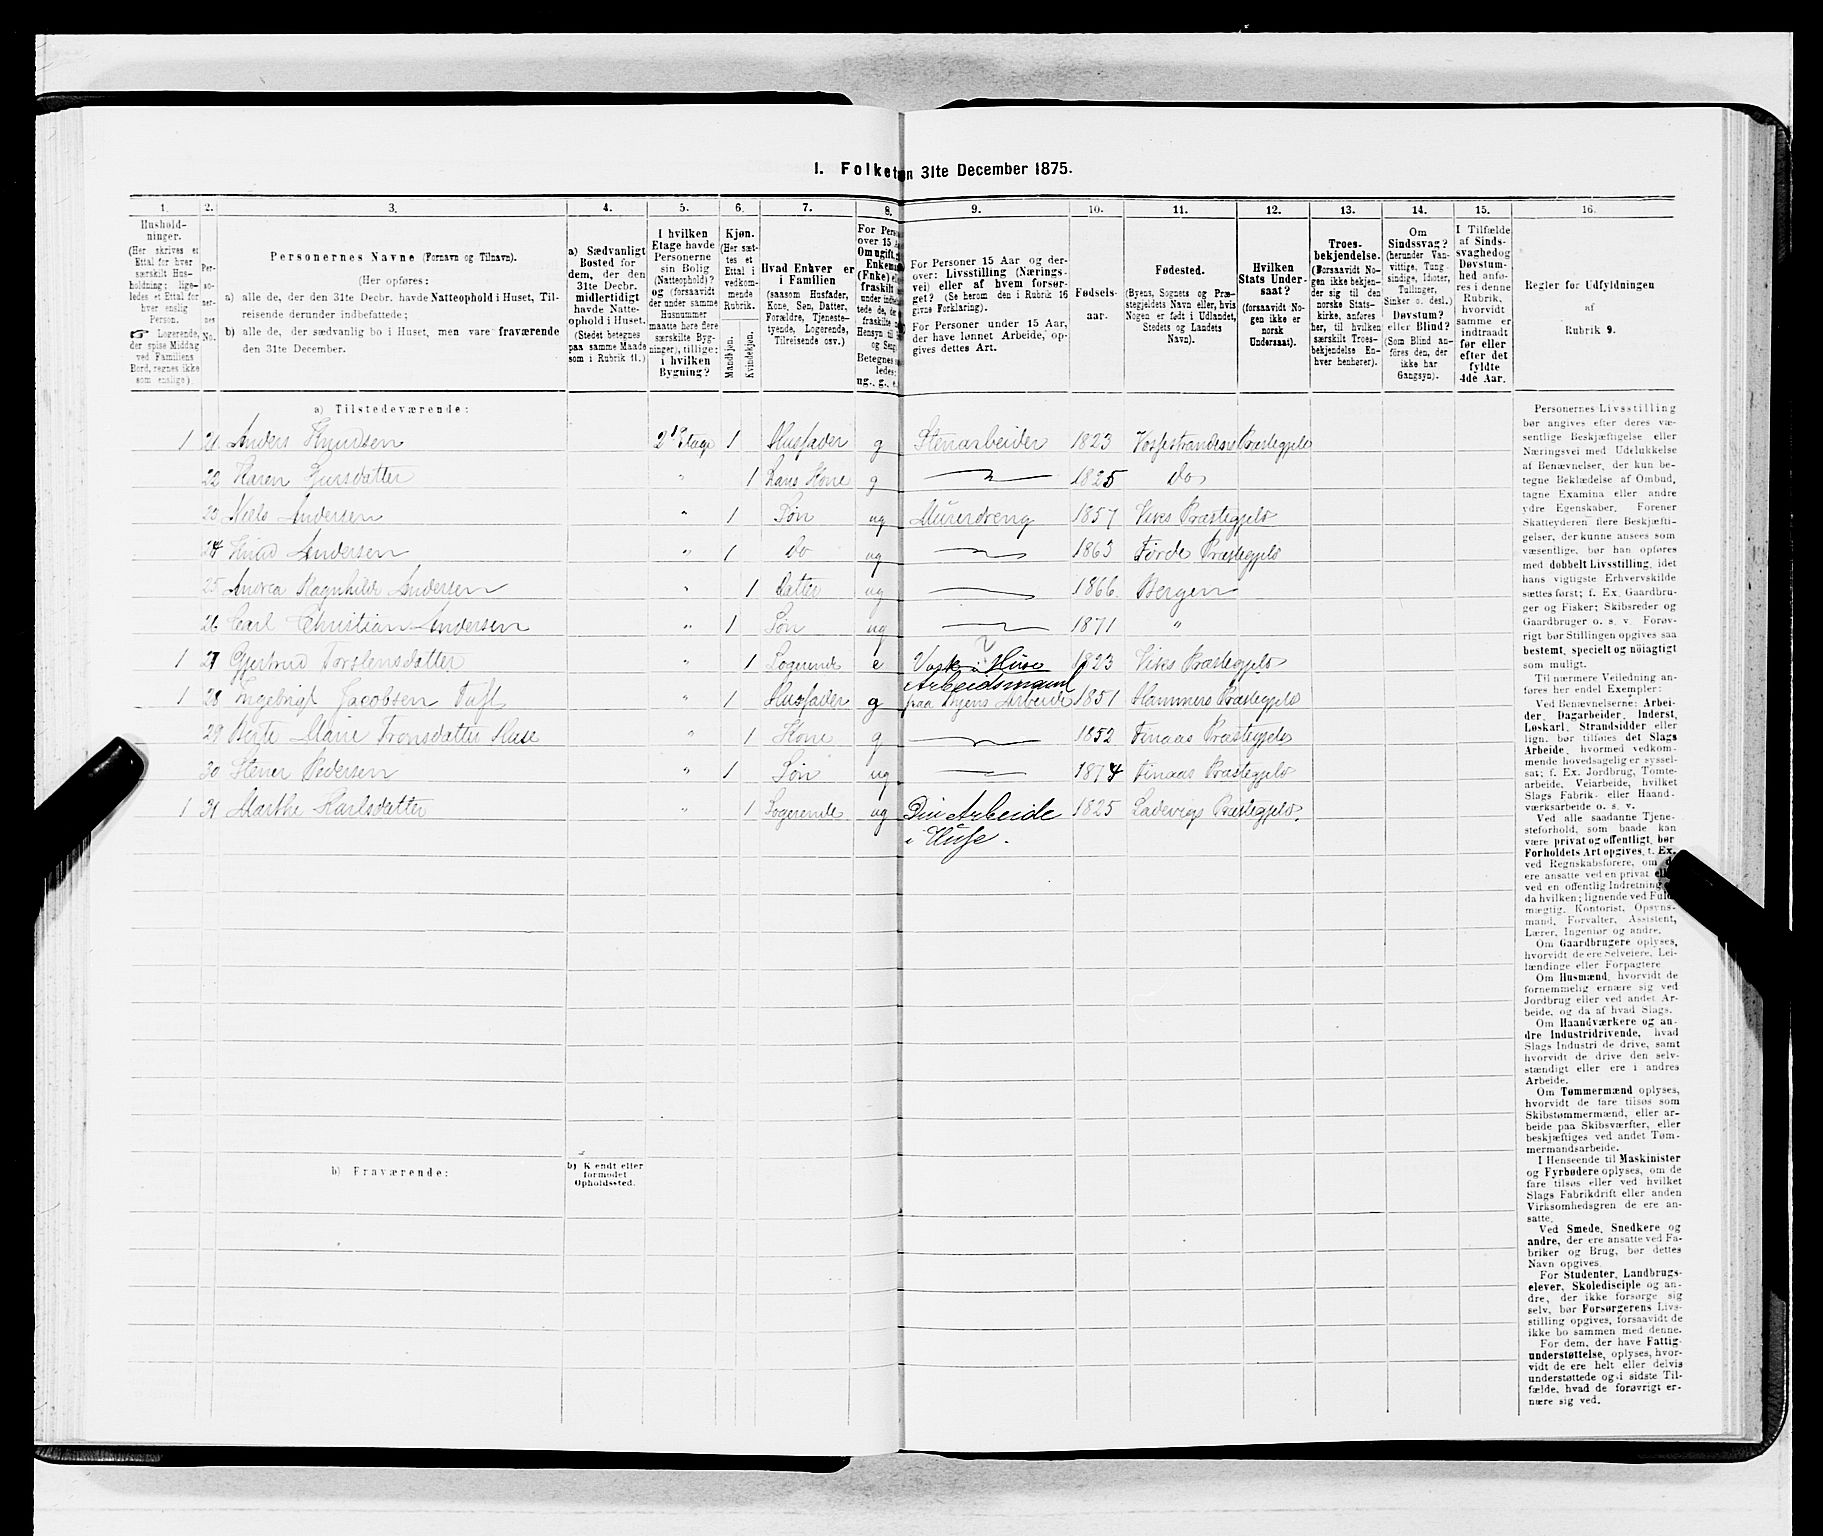 I. Folket n 31te December 1875.
1. 2. 3. 4. 5. 6. 7. 8. 9. 10. 11. 12. 13. 14. 15. 16.
Hushold-
ninger.
(Her skrives et
Ettal for hver
særskilt Hus-
holdning; lige-
ledes et Ettal for
hver enslig
Person.
☞ Logerende,
der spise Middag
ved Familiens
Bord, regnes ikke
som enslige).
Per-
so-
ner-
nes
No.
Personernes Navne (Fornavn og Tilnavn).
(Her opføres:
a) alle de, der den 31te Decbr. havde Natteophold i Huset, Til-
reisende derunder indbefattede;
b) alle de, der sædvanlig bo i Huset, men vare fraværende
den 31te December.
a) Sædvanligt
Bosted for
dem, der den
31te Decbr.
midlertidigt
havde Natte-
ophold i Huset.
(Stedet betegnes
paa samme Maade
som i Rubrik 11.)
I hvilken
Etage havde
Personerne
sin Bolig
(Natteophold)?
og (forsaavidt
der under samme
Husnummer
maatte høre flere
særskilte Byg-
ninger), tillige:
i hvilken
Bygning?
Kjøn.
(Her sæt-
tes et
Ettal i
vedkom-
mende
Rubrik.
Mandkjøn.
Kvindekjøn.
Hvad Enhver er
i Familien
(saasom Husfader,
Kone, Søn, Datter,
Forældre, Tjeneste-
tyende, Logerende,
Tilreisende osv.)
For Pers
over 15 A
Om ugift,
Enkem
(Fnke) e
fraskilt
under indbe
tede de, de
fraskilte
Hensyn til
og Seng
Betegnes
ledes:
ug., g., e.
For Personer 15 Aar og der-
over: Livsstilling (Nærings-
vei) eller af hvem forsør-
get? (Se herom den i Rubrik 16
givne Forklaring).
For Personer under 15 Aar,
der have lønnet Arbeide, op-
gives dettes Art.
Fødsels-
aar.
Fødested.
(Byens, Sognets og Præ-
stegjeldets Navn eller, hvis
Nogen er født i Udlandet,
Stedets og Landets
Navn).
Hvilken
Stats Under-
saat?
(forsaavidt No-
gen ikke er
norsk
Undersaat).
Troes-
bekjendelse.
(Forsaavidt No-
gen ikke bekjen-
der sig til den
norske Stats-
kirke, anføres
her, til hvilken
særskilt Troes-
bekjendelse En-
hver henhører).
Om
Sindssvag?
(herunder Van-
vittige, Tung-
sindige, Idioter,
Tullinger,
Sinker o. desl.)
Døvstum?
eller Blind?
(Som Blind an-
føres den, der
ikke har
Gangsyn).
I Tilfælde
af Sinds-
svaghed og
Døvstum-
hed anfø-
res i denne
Rubrik,
hvorvidt
samme er
indtraadt
før eller
efter det
fyldte
4de Aar.
Regler for Udfyldningen
af
Rubrik 9.
a) Tilstedeværende:
1 21 Anders Knudsen 2 Etage 1 Husfader g Stenarbeider 1823 Præstegjeld
22 Karen " 1 hans Kone g 1825 Do
23 Niels Andersen " 1 Søn ug Murerdreng 1857 Viks Præstegjeld
24 Knud Andersen " 1 Do ug 1863 Førde Præstegjeld
25 Andrea Ragnhilde Andersen " 1 Datter ug 1866 Bergen
26 Carl Christian Andersen " 1 Søn ug 1871 "
1 27 Gjertrud Torstensdatter " 1 Logerende e Vask i Huse 1823 Viks Præstegjeld
1 28 Ingebrigt Jacobsen Tuft " 1 Husfader g Arbeidsmand
paa Byens Arbeide 1851 Hammers Præstegjeld
29 Berte Marie Tronsdatter " 1 Kone g 1852 Finaas Præstegjeld
30 Stener Pedersen " 1 Søn ug 1874 Finaas Præstegjeld
1 31 Marthe Karlsdatter " 1 Logerende ug Div Arbeide
i Huse. 1825 Ladevigs Præstegjeld.
b) Fraværende:
b) Kjendt eller
formodet
Opholdssted.
Personernes Livsstilling
bør angives efter deres væ-
sentlige Beskjæftigelse eller
Næringsvei med Udelukkelse
af Benævnelser, der kun be-
tegne Beklædelse af Ombud,
tagne Examina eller andre
ydre Egenskaber. Forener
Skatteyderen flere Beskjæfti-
gelser, der kunne ansees som
væsentlige, bør han opføres
med dobbelt Livsstilling, idet
hans vigtigste Erhvervskilde
sættes først; f. Ex. Gaardbru-
ger og Fisker; Skibsreder og
Gaardbruger o. s. v. Forøv-
rigt bør Stillingen opgives saa
bestemt, specielt og nøiagtigt
som muligt.
Til nærmere Veiledning an-
føres her endel Exempler:
Ved Benævnelserne: Arbei-
der, Dagarbeider, Inderst,
Løskarl, Strandsidder eller
lign. bør tilføies det Slags
Arbeide, hvormed vedkom-
mende hovedsagelig er syssel-
sat; f. Ex. Jordbrug, Tomte-
arbeide, Veiarbeide, hvilket
Slags Fabrik- eller Haand-
værksarbeide o. s. v.
Ved alle saadanne Tjene-
steforhold, som baade kan
være privat og offentligt, bør
Forholdets Art opgives, t. Ex.
ved Regnskabsførere, om d
ere ansatte ved en privat ell
ved en offentlig Indretning
da hvilken; lignende ved Fuld-
mægtig, Kontorist, Opsyns-
mand, Forvalter, Assistent,
Lærer, Ingeniør og andre.
Om Gaardbrugere oplyses,
hvorvidt de ere Selveiere, Lei-
lændinge eller Forpagtere
Om Husmænd, hvorvidt de
fornemmelig ernære sig ved
Jordbrug eller ved andet Ar-
beide, og da af hvad Slags.
Om Haandværkere og an-
dre Industridrivende, hvad
Slags Industri de drive, samt
hvorvidt de drive den selv-
stændigt eller ere i andres
Arbeide.
Om Tømmermænd oplyses,
hvorvidt de fare tilsøs som
Skibstømmermænd, eller ar-
beide paa Skibsværfter, eller
beskjæftiges ved andet Tøm-
mermandsarbeide.
I Henseende til Maskinister
og Fyrbødere oplyses, om de
fare tilsøs eller ved hvilket
Slags Fabrikdrift eller anden
Virksomhedsgren de ere an-
satte.
Ved Smede, Snedkere og
andre, der ere ansatte ved Fa-
briker og Brug, bør dettes
Navn opgives.
For Studenter, Landbrugs-
elever, Skoledisciple og an-
dre, der ikke forsørge sig
selv, bør Forsørgerens Livs-
stilling opgives, forsaavidt de
ikke bo sammen med denne.
For dem, der have Fattig-
understøttelse, oplyses, hvor-
vidt de ere helt eller delvis
understøttede og i sidste Til-
fælde, hvad de forøvrigt er-
nære sig ved.